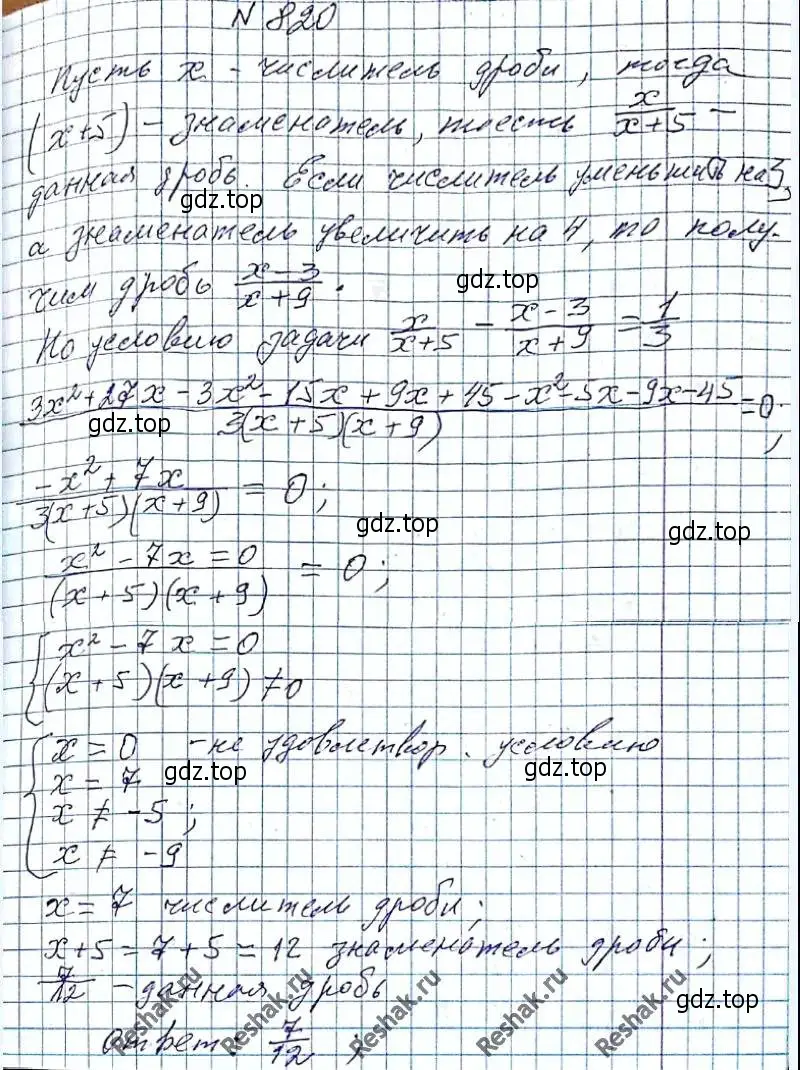 N 820
Пусть x - числитель дроби, тогда
(x+5) - знаменатель, тоесть x/(x+5) -
данная дробь. Если числитель уменьшить на 3,
gdz.top
а знаменатель увеличить на 4, то полу-
чим дробь (x-3)/(x+9).
gdz.top
По условию задачи x/(x+5) - (x-3)/(x+9) = 1/3
(3x²+27x-3x²-15x+9x+45-x²-5x-9x-45)/(3(x+5)(x+9)) = 0;
gdz.top
(-x²+7x)/(3(x+5)(x+9)) = 0;
gdz.top
gdz.top
(x²-7x=0)/((x+5)(x+9)) = 0;
{x²-7x=0
(x+5)(x+9)≠0
{x=0 -не удовлетвор. условию
x=7
gdz.top
gdz.top
x≠-5;
x≠-9
x=7 числитель дроби;
x+5=7+5=12 знаменатель дроби;
7/12 - данная дробь
gdz.top
Ответ: 7/12;
Reshak.ru
Reshak.ru
Reshak.ru
Reshak.ru
Reshak.ru